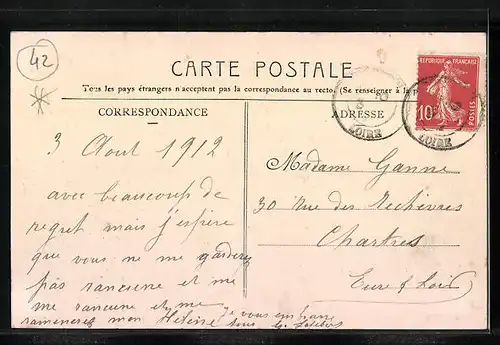 42
CARTE POSTALE
Tous les pays étrangers n'acceptent pas la correspondance au recto. (Se renseigner à la
CORRESPONDANCE
ADRESSE
REPUBLIQUE FRANÇAISE
10c
POSTES
LOIRE
LOIRE
3 Aout 1912
avec beaucoup de
regret mais j'espère
que vous ne me garderez
pas rancune et me
me rancune et me
ramenerez mon Hélène
je vous embrasse
tous
Madame Ganne
30 Rue des
Chartres
Eure & Loir